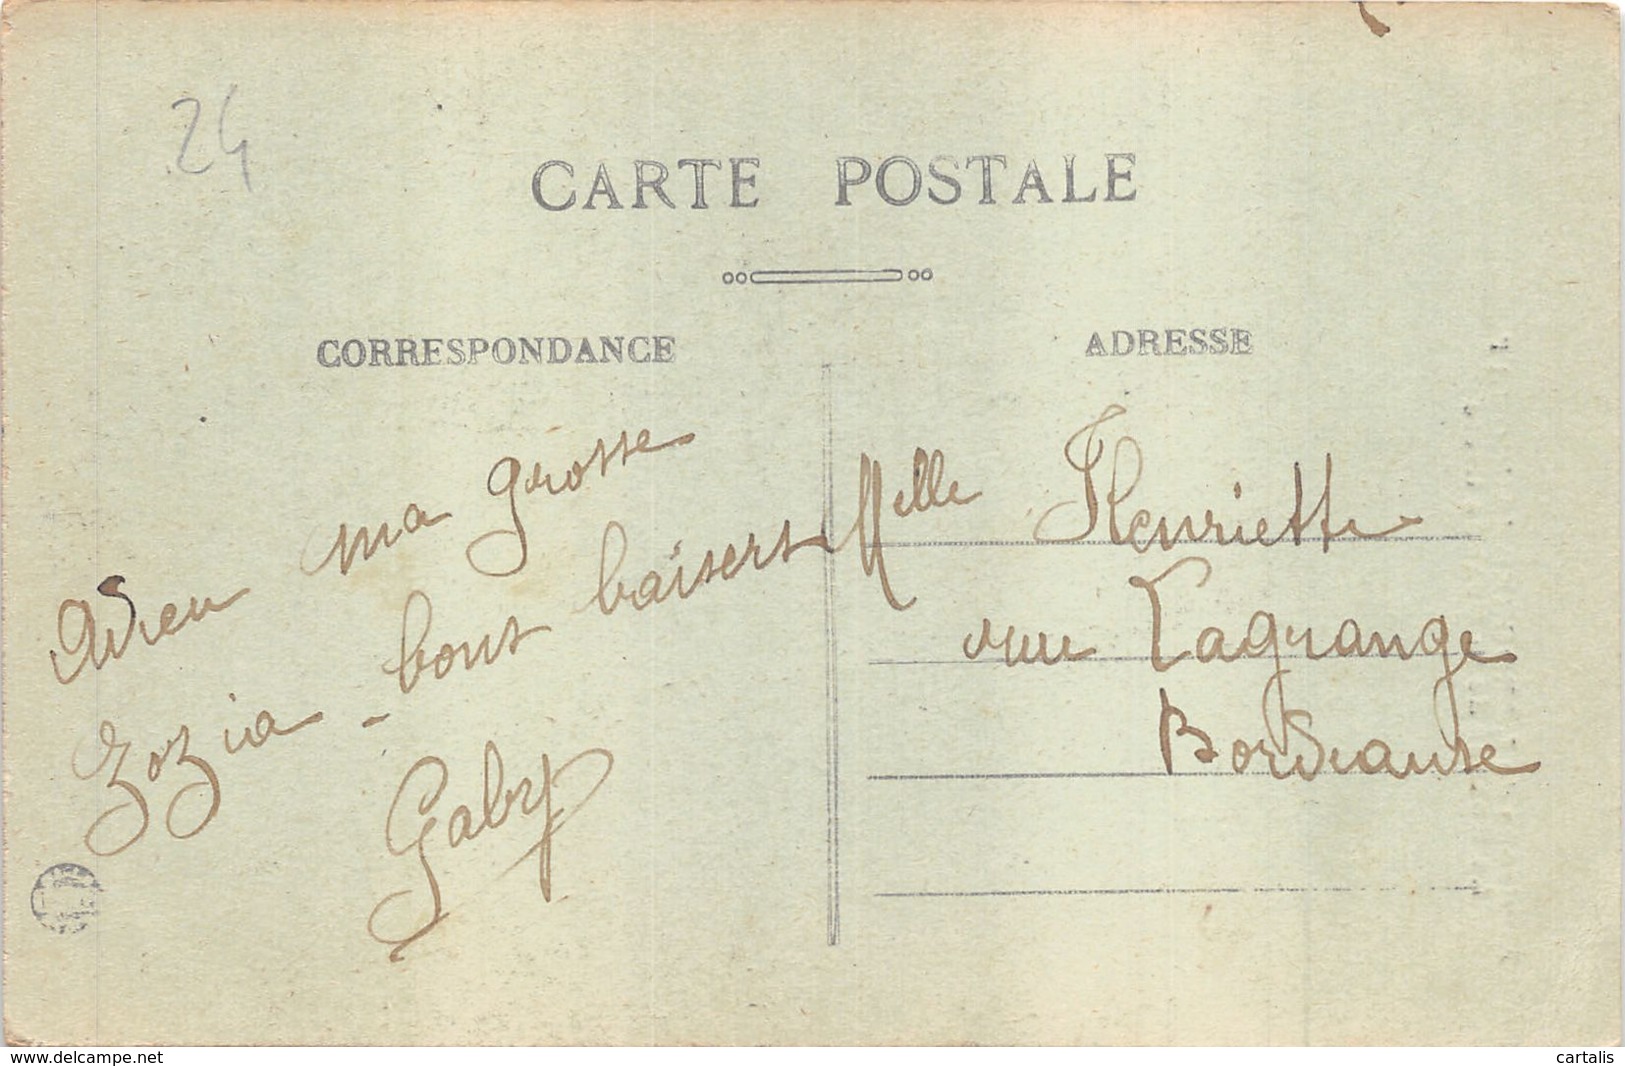 24
CARTE POSTALE
CORRESPONDANCE
ADRESSE
Adieu ma grosse
Zozia - bons baisers
Gaby
Melle Henriette
rue Lagrange
Bordeaux
www.delcampe.net
cartalis